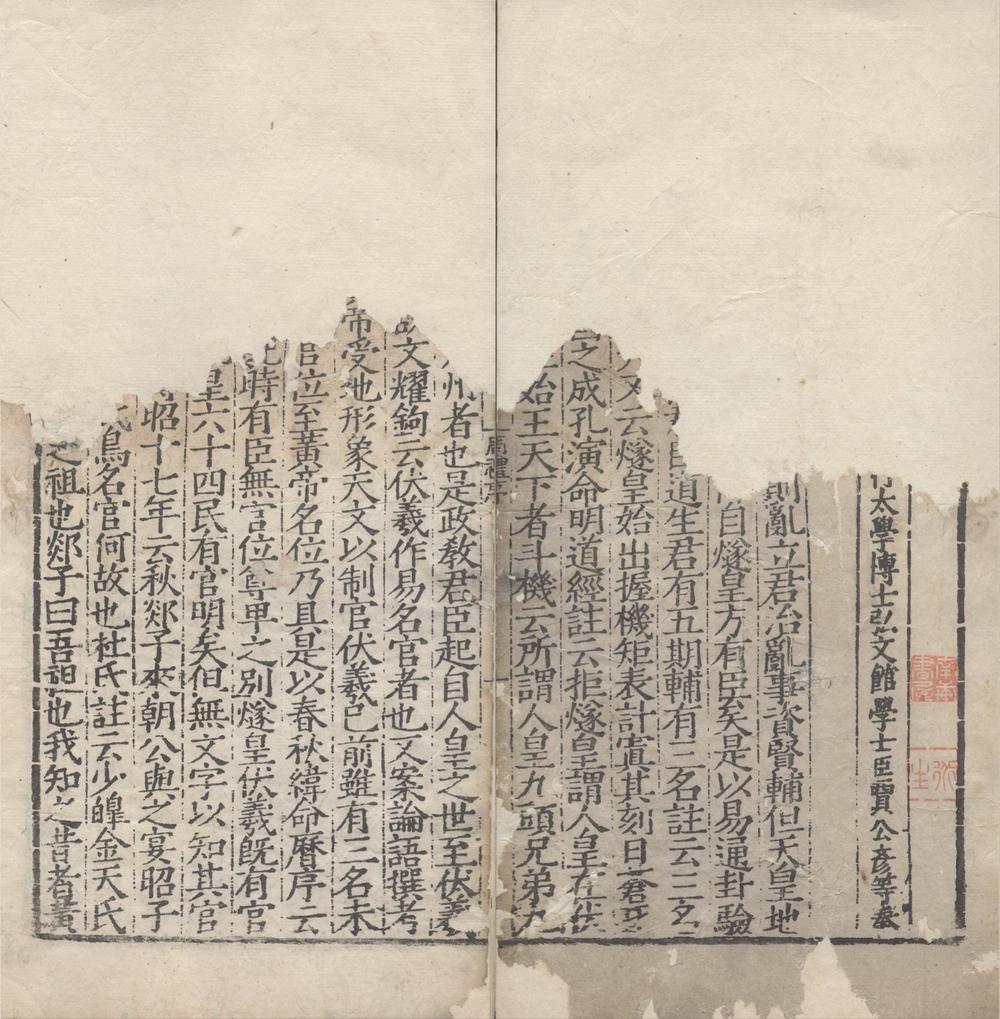 太學博士弘文館學士臣賈公彥等奉
則亂立君治亂事資賢輔但天皇地
自燧皇方有臣矣是以易通卦驗
道生君有五期輔有三名註云三名
又云燧皇始出握機矩表計寘其刻曰蒼
之成孔演命明道經註云拒燧皇謂人皇在伏
始王天下者斗機云所謂人皇九頭兄弟九
周禮序
州者也是政教君臣起自人皇之世至伏羲
文耀鉤云伏羲作易名官者也又案論語撰考
帝受地形象天文以制官伏羲已前雖有三名未
官位至黃帝名位乃具是以春秋緯命曆序云
時有臣無官位尊卑之別燧皇伏羲既有官
皇六十四民有官明矣但無文字以知其官
昭十七年云秋郯子來朝公與之宴昭子
鳥名官何故也杜氏註云少皥金天氏
之祖也郯子曰吾祖也我知之昔者黃